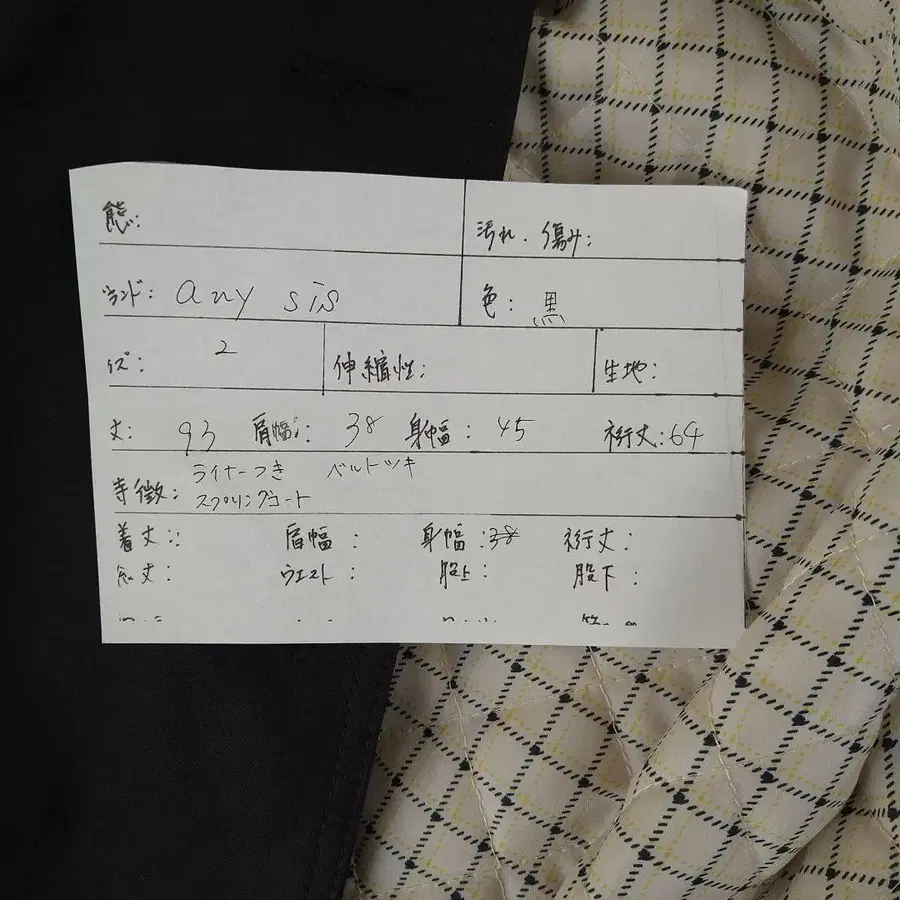 態: 汚れ・傷み:
ランド: any sis 色: 黒
イズ: 2 伸縮性: 生地:
丈: 93 肩幅: 38 身幅: 45 裄丈: 64
特徴: ライナーつき ベルトツキ
スプリングコート
着丈: 肩幅: 身幅: 38 裄丈:
総丈: ウエスト: 股上: 股下: